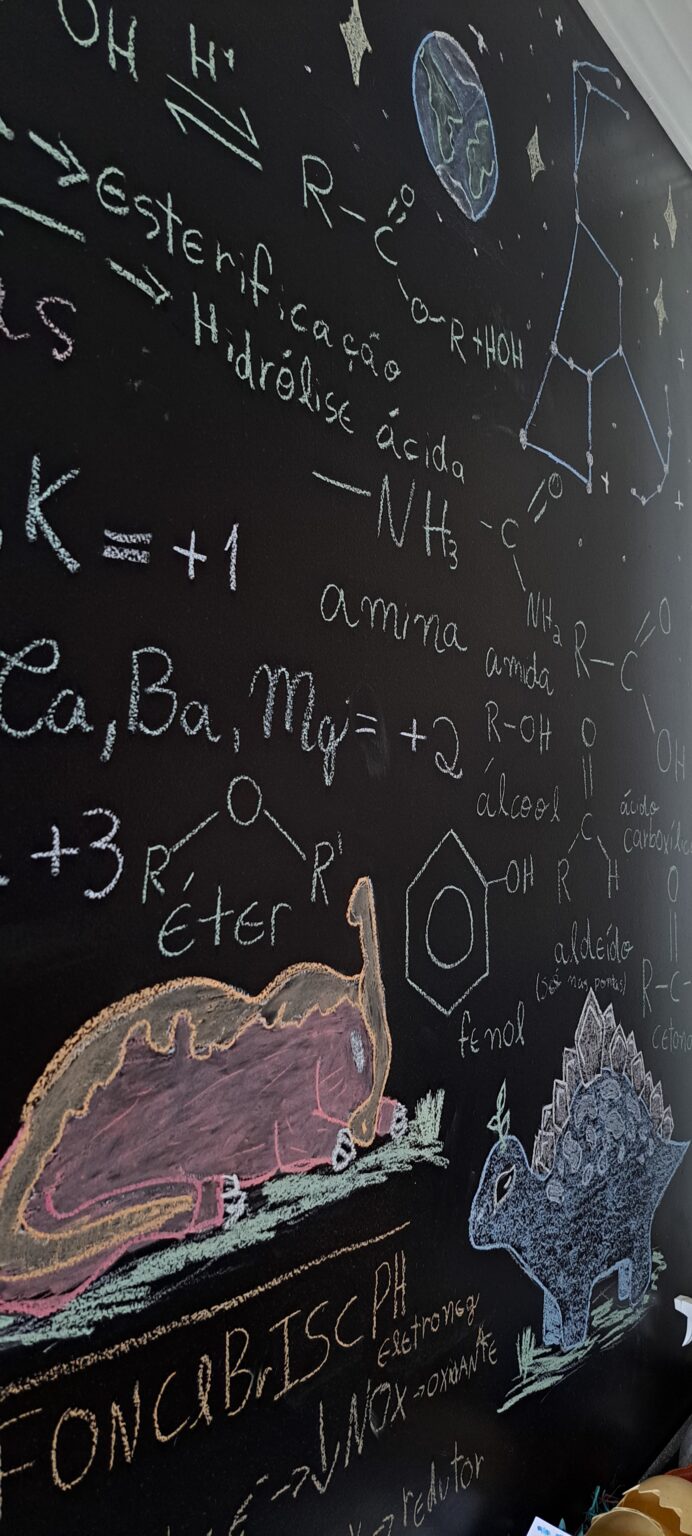 OH H⁺ ⇌ R-C=O
O-R+HOH
→ Esterificação
→ Hidrólise ácida
as
K = +1
-NH₃
amina
-C=O
NH₂
amida
R-C=O
OH
ácido
carboxílic
Ca, Ba, Mg = +2
R-OH
álcool
+3
R O R'
éter
OH
fenol
O
C
R H
aldeído
(Só nas pontas)
O
R-C-
cetona
FONClBrISCPH
eletroneg
E → ↓NOX → OXIDANTE
→ redutor